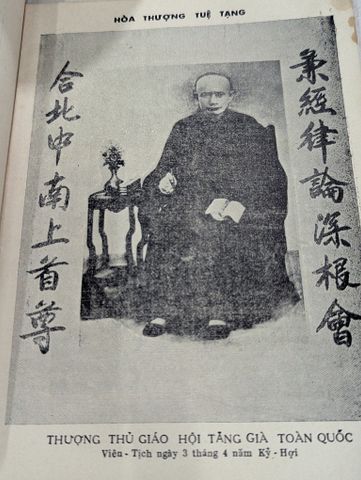 HÒA THƯỢNG TUỆ TẠNG
兼經律論深根會
合北中南上首尊
THƯỢNG THỦ GIÁO HỘI TĂNG GIÀ TOÀN QUỐC
Viên - Tịch ngày 3 tháng 4 năm Kỷ - Hợi